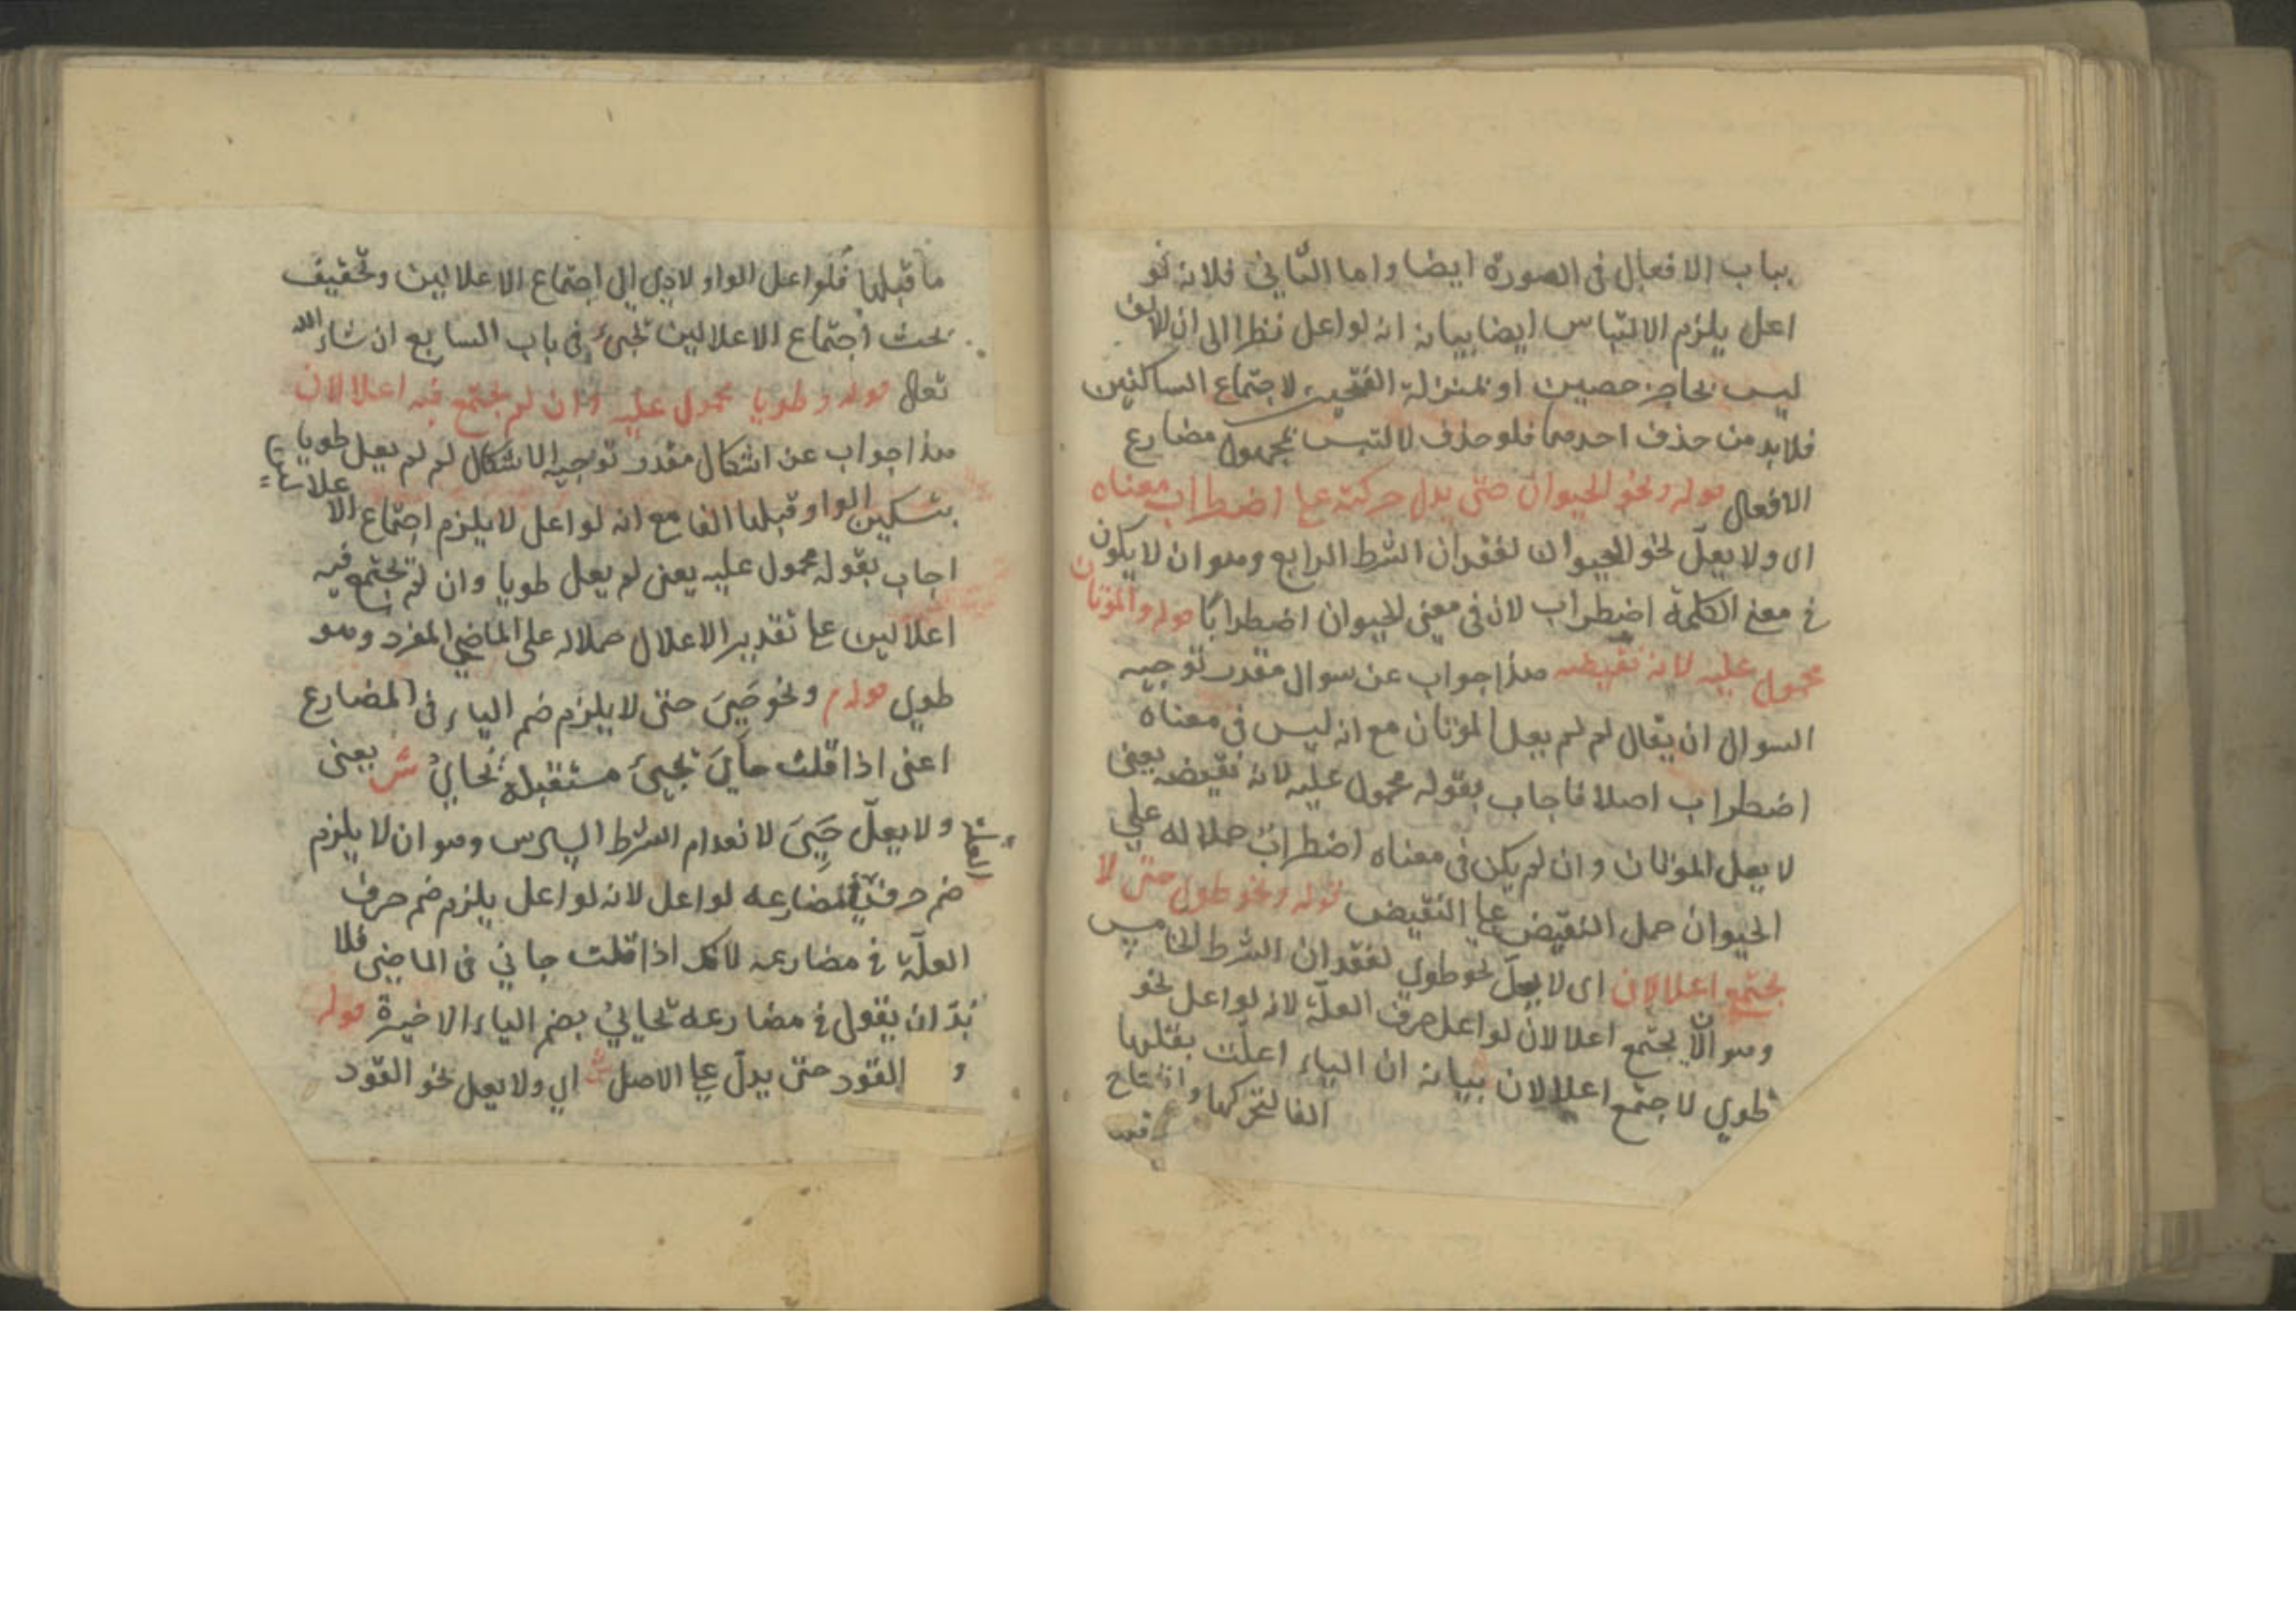 بباب الافعال فى الصورة ايضا واما الثاني فلانه لو
اعل يلزم الالتباس ايضا بيانه انه لو اعل نظرا الى ان الالف
ليس بحاجز حصين او بمنزلة الفتحين لاجتماع الساكنين
فلابد من حذف احدهما فلو حذف لالتبس بمجهول مضارع
الافعال قوله ونحو الحيوان حتى يدل حركته على اضطراب معناه
اى ولا يعل نحو الحيوان لفقدان الشرط الرابع وهو ان لا يكون
فى معنى الكلمة اضطراب لان فى معنى الحيوان اضطرابا قوله والموتان
محمول عليه لانه نقيضه هذا جواب عن سوال مقدر توجيه
السوال ان يقال لم لم يعل الموتان مع انه ليس فى معناه
اضطراب اصلا فاجاب بقوله محمول عليه لانه نقيضه يعنى
لا يعل الموتان وان لم يكن فى معناه اضطراب حملا له علي
الحيوان حمل النقيض على النقيض قوله ونحو طوى حتى لا
يجتمع اعلالان اى لا يعل نحو طوي لفقدان الشرط الخامس
وهو ان لا يجتمع اعلالان لو اعل حرف العلة لانه لو اعل نحو
طوي لاجتمع اعلالان بيانه ان الياء اعلت بقلبها
الفا لتحركها وانفتاح
ما قبلها فلو اعل الواو لادى الى اجتماع الاعلالين وتحقيق
بحث اجتماع الاعلالين تجيء فى باب السابع ان شاء الله
تعالى قوله وطويا محمول عليه وان لم يجتمع فيه اعلالان
هذا جواب عن اشكال مقدر توجيه الاشكال لم لم يعل طويا
بتسكين الواو وقبلها الفا مع انه لو اعل لا يلزم اجتماع الاعلالين
اجاب بقوله محمول عليه يعنى لم يعل طويا وان لم يجتمع فيه
اعلالين على تقدير الاعلال حملا له على الماضي المفرد وهو
طوى قوله ونحو حَيِيَ حتى لا يلزم ضم الياء فى المضارع
اعنى اذا قلت حاي يجيئ مستقبله يحايُ ش يعنى
ولا يعلّ حَيِيَ لانعدام الشرط السادس وهو ان لا يلزم
ضم حرف العلة فى مضارعه لو اعل لانه لو اعل يلزم ضم حرف
العلة فى مضارعه لانك اذا قلت حاي فى الماضى فلا
بدّ ان يقول فى مضارعه يحاي بضم الياء الاخيرة قوله
و القود حتى يدلّ على الاصل ش اي ولا يعل نحو القود